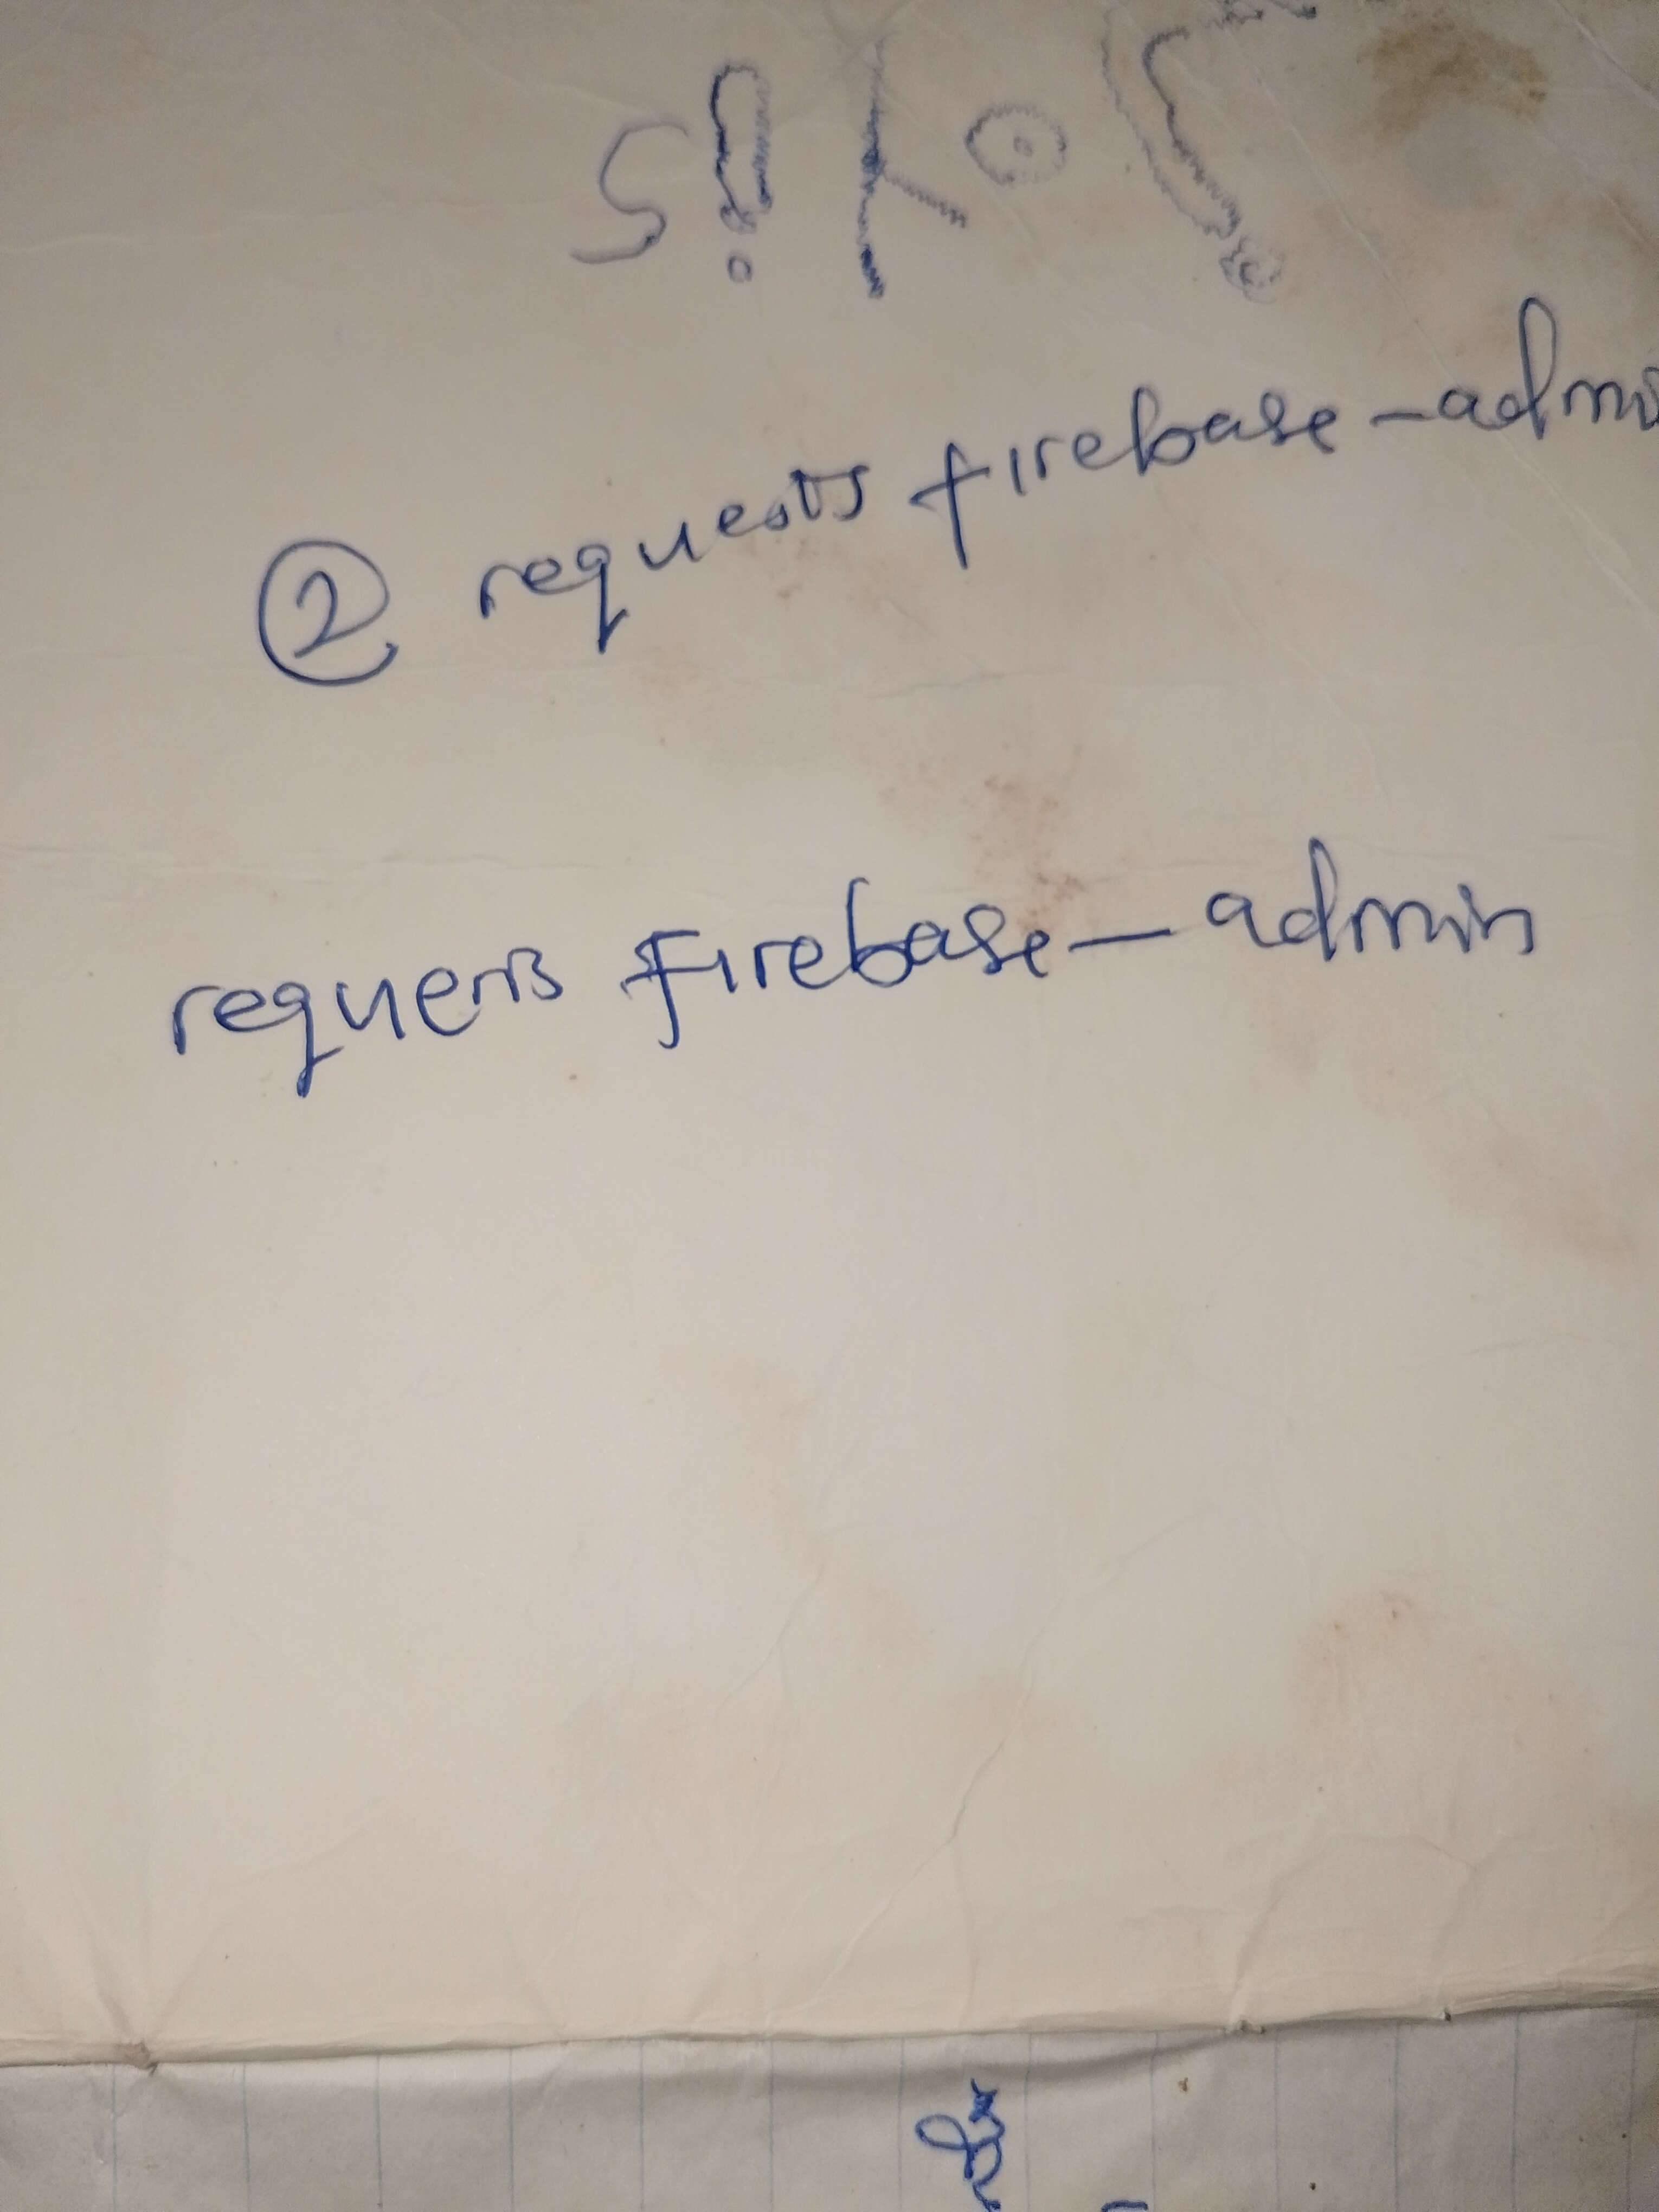 ② requests firebase-admi
requests firebase-admin